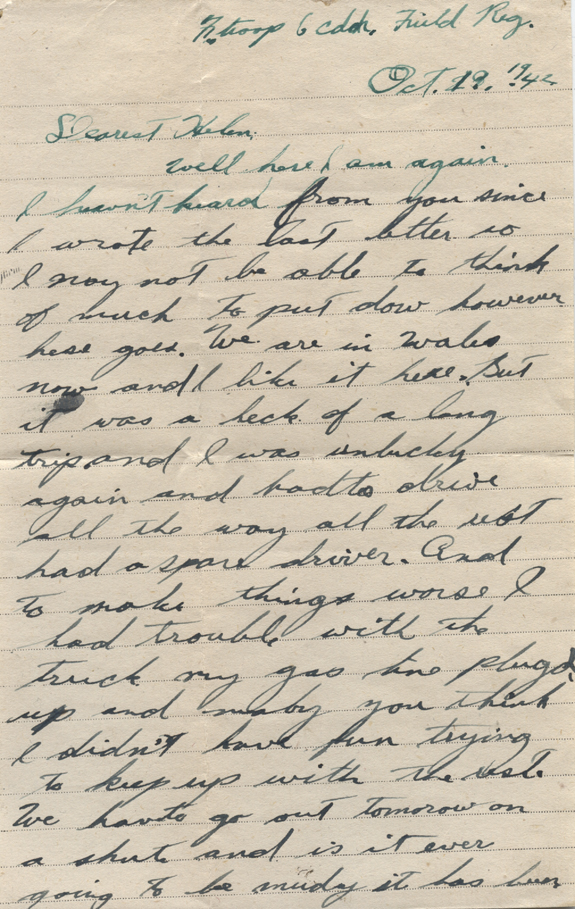 F. troop 6 cdn. Field Reg.
Oct. 19. 1942
Dearest Helen;
Well here I am again.
I havn't heard from you since
I wrote the last letter so
I may not be able to think
of much to put dow however
here goes. We are in Wales
now and I like it here. But
it was a heck of a long
trip. and I was unlucky
again and had to drive
all the way all the rest
had a spare driver. And
to make things worse I
had trouble with the
truck my gas line plugd
up and maby you think
I didn't have fun trying
to keep up with the rest.
We have to go out tomorow on
a shute and is it ever
going to be mudy it has been